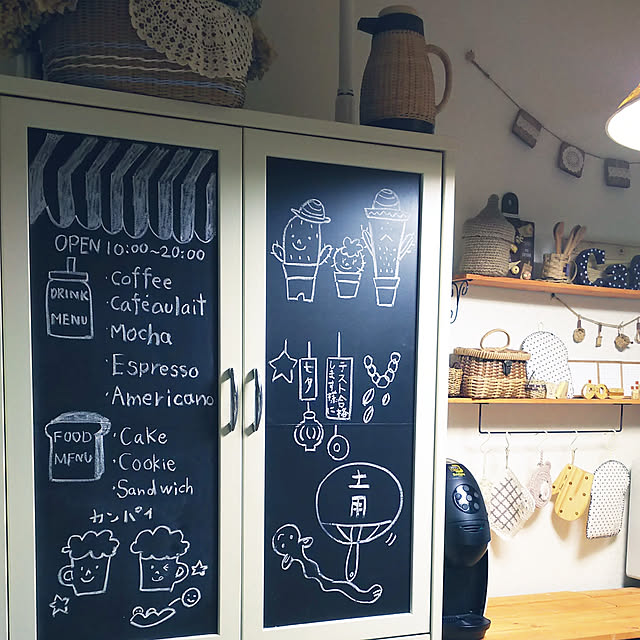 OPEN 10:00~20:00
DRINK
MENU
・Coffee
・Caféaulait
・Mocha
・Espresso
・Americano
FOOD
MENU
・Cake
・Cookie
・Sandwich
カンパイ
七夕
テスト合格
します様に
土用